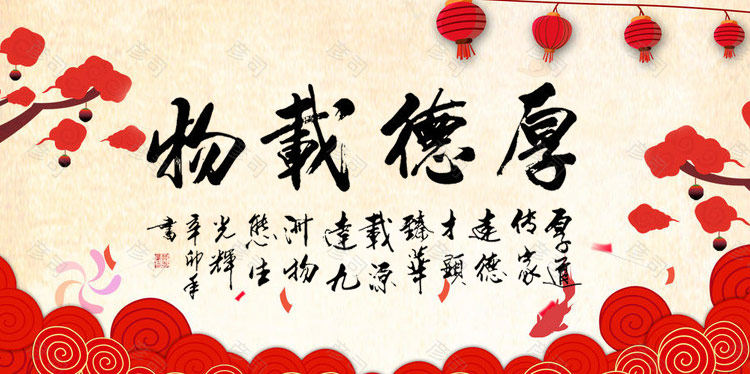 厚德載物
厚道
传家
遠德
才顯
臻華
載源
達九
洲物
態生
光輝
辛卯年
書